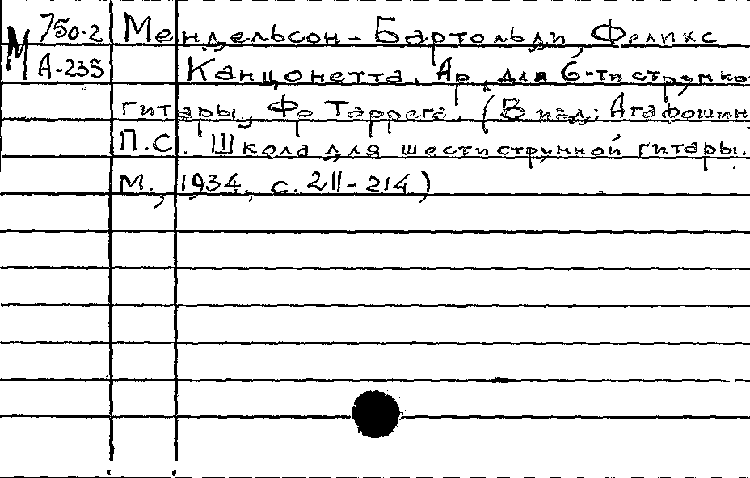 М 750-2 Мендельсон-Бартольди, Феликс
А-235 Канцонетта. Ар. для 6-ти струнно
гитары Фр. Таррега. (В изд: Агафошин
П.С. Школа для шестиструнной гитары.
М., 1934, с. 211-214.)